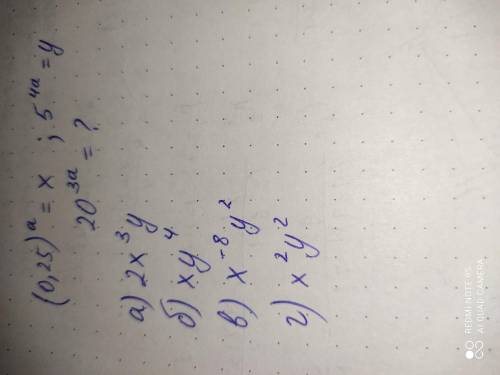 (0,25)ᵃ = x ; 5⁴ᵃ = y
20³ᵃ = ?
а) 2x³y
б) xy⁴
в) x⁻⁸y²
г) x²y²
REDMI NOTE 8S
AI QUAD CAMERA